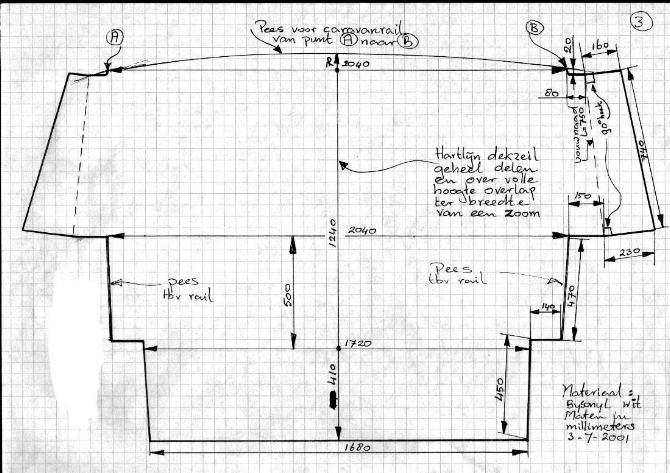 3
Pees voor caravanrail
van punt A naar B
A
B
20
160
R 2040
80
L=750
90° hoek
740
Hartlijn dekzeil
geheel delen
en over volle
hoogte overlap
ter breedte
van een zoom
150
1240
2040
230
pees
tbv rail
500
Pees
tbv rail
470
140
1720
410
450
Materiaal =
Bysonyl wit
Maten in
millimeters
3-7-2001
1680